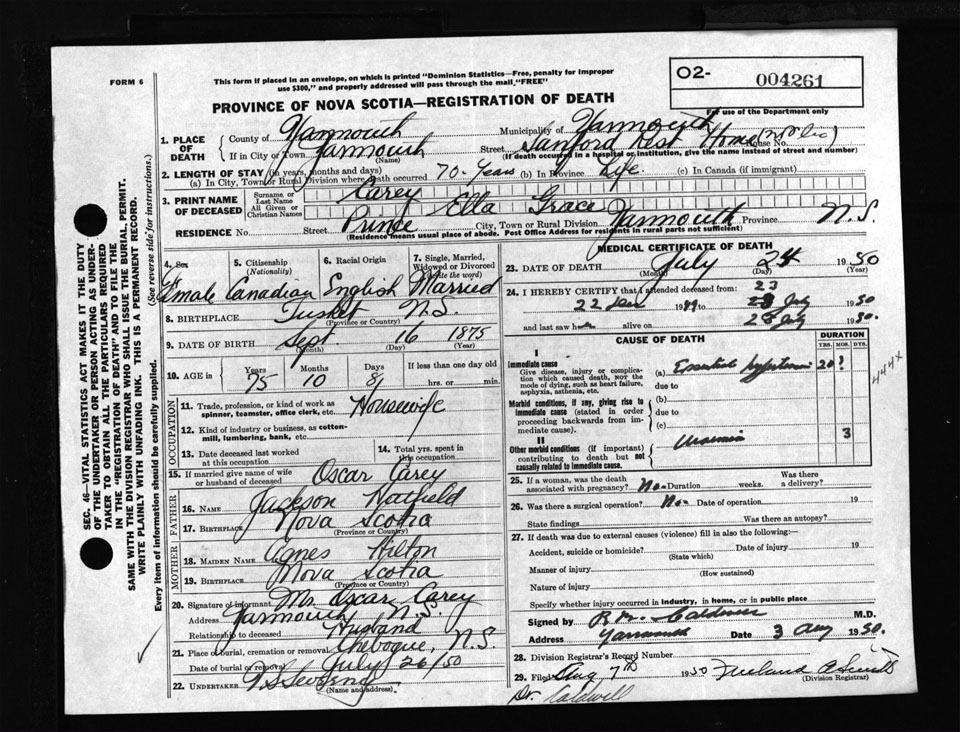 FORM 6
This form if placed in an envelope, on which is printed "Dominion Statistics—Free, penalty for improper
use $300," and properly addressed will pass through the mail "FREE"
O2- 004261
For use of the Department only
PROVINCE OF NOVA SCOTIA—REGISTRATION OF DEATH
1. PLACE OF DEATH
County of Yarmouth Municipality of Yarmouth
If in City or Town Yarmouth Street Sanford Rest Home House No.
(Name) (If death occurred in a hospital or institution, give the name instead of street and number)
2. LENGTH OF STAY (in years, months and days)
(a) In City, Town or Rural Division where death occurred 70-Years (b) In Province Life (c) In Canada (if immigrant)
3. PRINT NAME OF DECEASED
Surname or Last Name Carey
All Given or Christian Names Ella Grace
RESIDENCE No. Street Prince City, Town or Rural Division Yarmouth Province N.S.
(Residence means usual place of abode. Post Office Address for residents in rural parts not sufficient)
4. Sex Female
5. Citizenship (Nationality) Canadian
6. Racial Origin English
7. Single, Married, Widowed or Divorced (Write the word) Married
8. BIRTHPLACE Tusket N.S.
(Province or Country)
9. DATE OF BIRTH Sept. 16 1875
(Month) (Day) (Year)
10. AGE in Years Months Days If less than one day old
75 10 8 hrs. or min.
OCCUPATION
11. Trade, profession, or kind of work as spinner, teamster, office clerk, etc. Housewife
12. Kind of industry or business, as cotton-mill, lumbering, bank, etc.
13. Date deceased last worked at this occupation
14. Total yrs. spent in this occupation
15. If married give name of wife or husband of deceased Oscar Carey
FATHER
16. NAME Jackson Hatfield
17. BIRTHPLACE Nova Scotia
(Province or Country)
MOTHER
18. MAIDEN NAME Agnes Hilton
19. BIRTHPLACE Nova Scotia
(Province or Country)
20. Signature of informant Mr. Oscar Carey
Address Yarmouth N.S.
Relationship to deceased Husband
21. Place of burial, cremation or removal Chebogue, N.S.
Date of burial or removal July 26/50
22. UNDERTAKER
(Name and address)
MEDICAL CERTIFICATE OF DEATH
23. DATE OF DEATH July 24 1950
(Month) (Day) (Year)
24. I HEREBY CERTIFY that I attended deceased from:
22 Dec 1949 23 July 1950
and last saw her alive on 23 July 1950.
CAUSE OF DEATH
DURATION
YRS. MOS. DYS.
I
Immediate cause
Give disease, injury or complication which caused death, not the mode of dying, such as heart failure, asphyxia, asthenia, etc.
(a) Essential hypertension 20?
due to
Morbid conditions, if any, giving rise to immediate cause (stated in order proceeding backwards from immediate cause).
(b)
due to
(c)
II
Other morbid conditions (if important) contributing to death but not causally related to immediate cause.
Uraemia 3
444X
25. If a woman, was the death associated with pregnancy? No Duration weeks. Was there a delivery?
26. Was there a surgical operation? No Date of operation 19
State findings Was there an autopsy?
27. If death was due to external causes (violence) fill in also the following:
Accident, suicide or homicide? Date of injury 19
(State which)
Manner of injury
(How sustained)
Nature of injury
Specify whether injury occurred in industry, in home, or in public place
Signed by Caldwell M.D.
Address Yarmouth Date 3 Aug 1950.
28. Division Registrar's Record Number
29. Filed Aug 7th 1950
(Division Registrar)
Dr. Caldwell
SEC. 46—VITAL STATISTICS ACT MAKES IT THE DUTY
OF THE UNDERTAKER OR PERSON ACTING AS UNDER-
TAKER TO OBTAIN ALL THE PARTICULARS REQUIRED
IN THE "REGISTRATION OF DEATH" AND TO FILE THE
SAME WITH THE DIVISION REGISTRAR WHO SHALL ISSUE THE BURIAL PERMIT.
WRITE PLAINLY WITH UNFADING INK. THIS IS A PERMANENT RECORD.
Every item of information should be carefully supplied. (See reverse side for instructions.)